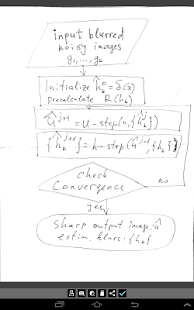 input blurred
noisy images
g₁,...,gₖ
Initialize ĥₖ⁰=δ(x)
precalculate R(hₖ)
û^{j+1}=u-step(u,{ĥₖ})
{ĥₖ^{j+1}}=h-step(û^{j+1},{hₖ})
check
Convergence
no
yes
sharp output image: û
estim. blurs: {ĥₖ}